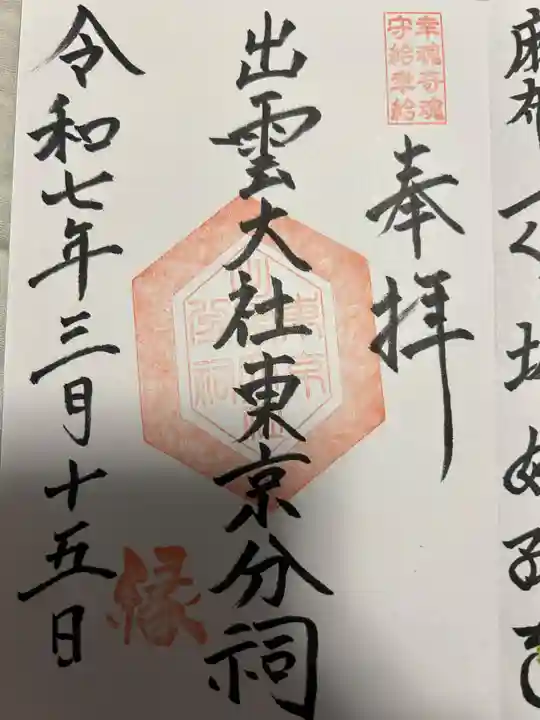 幸魂奇魂
守給幸給
奉拝
出雲大社東京分祠
縁
令和七年三月十五日